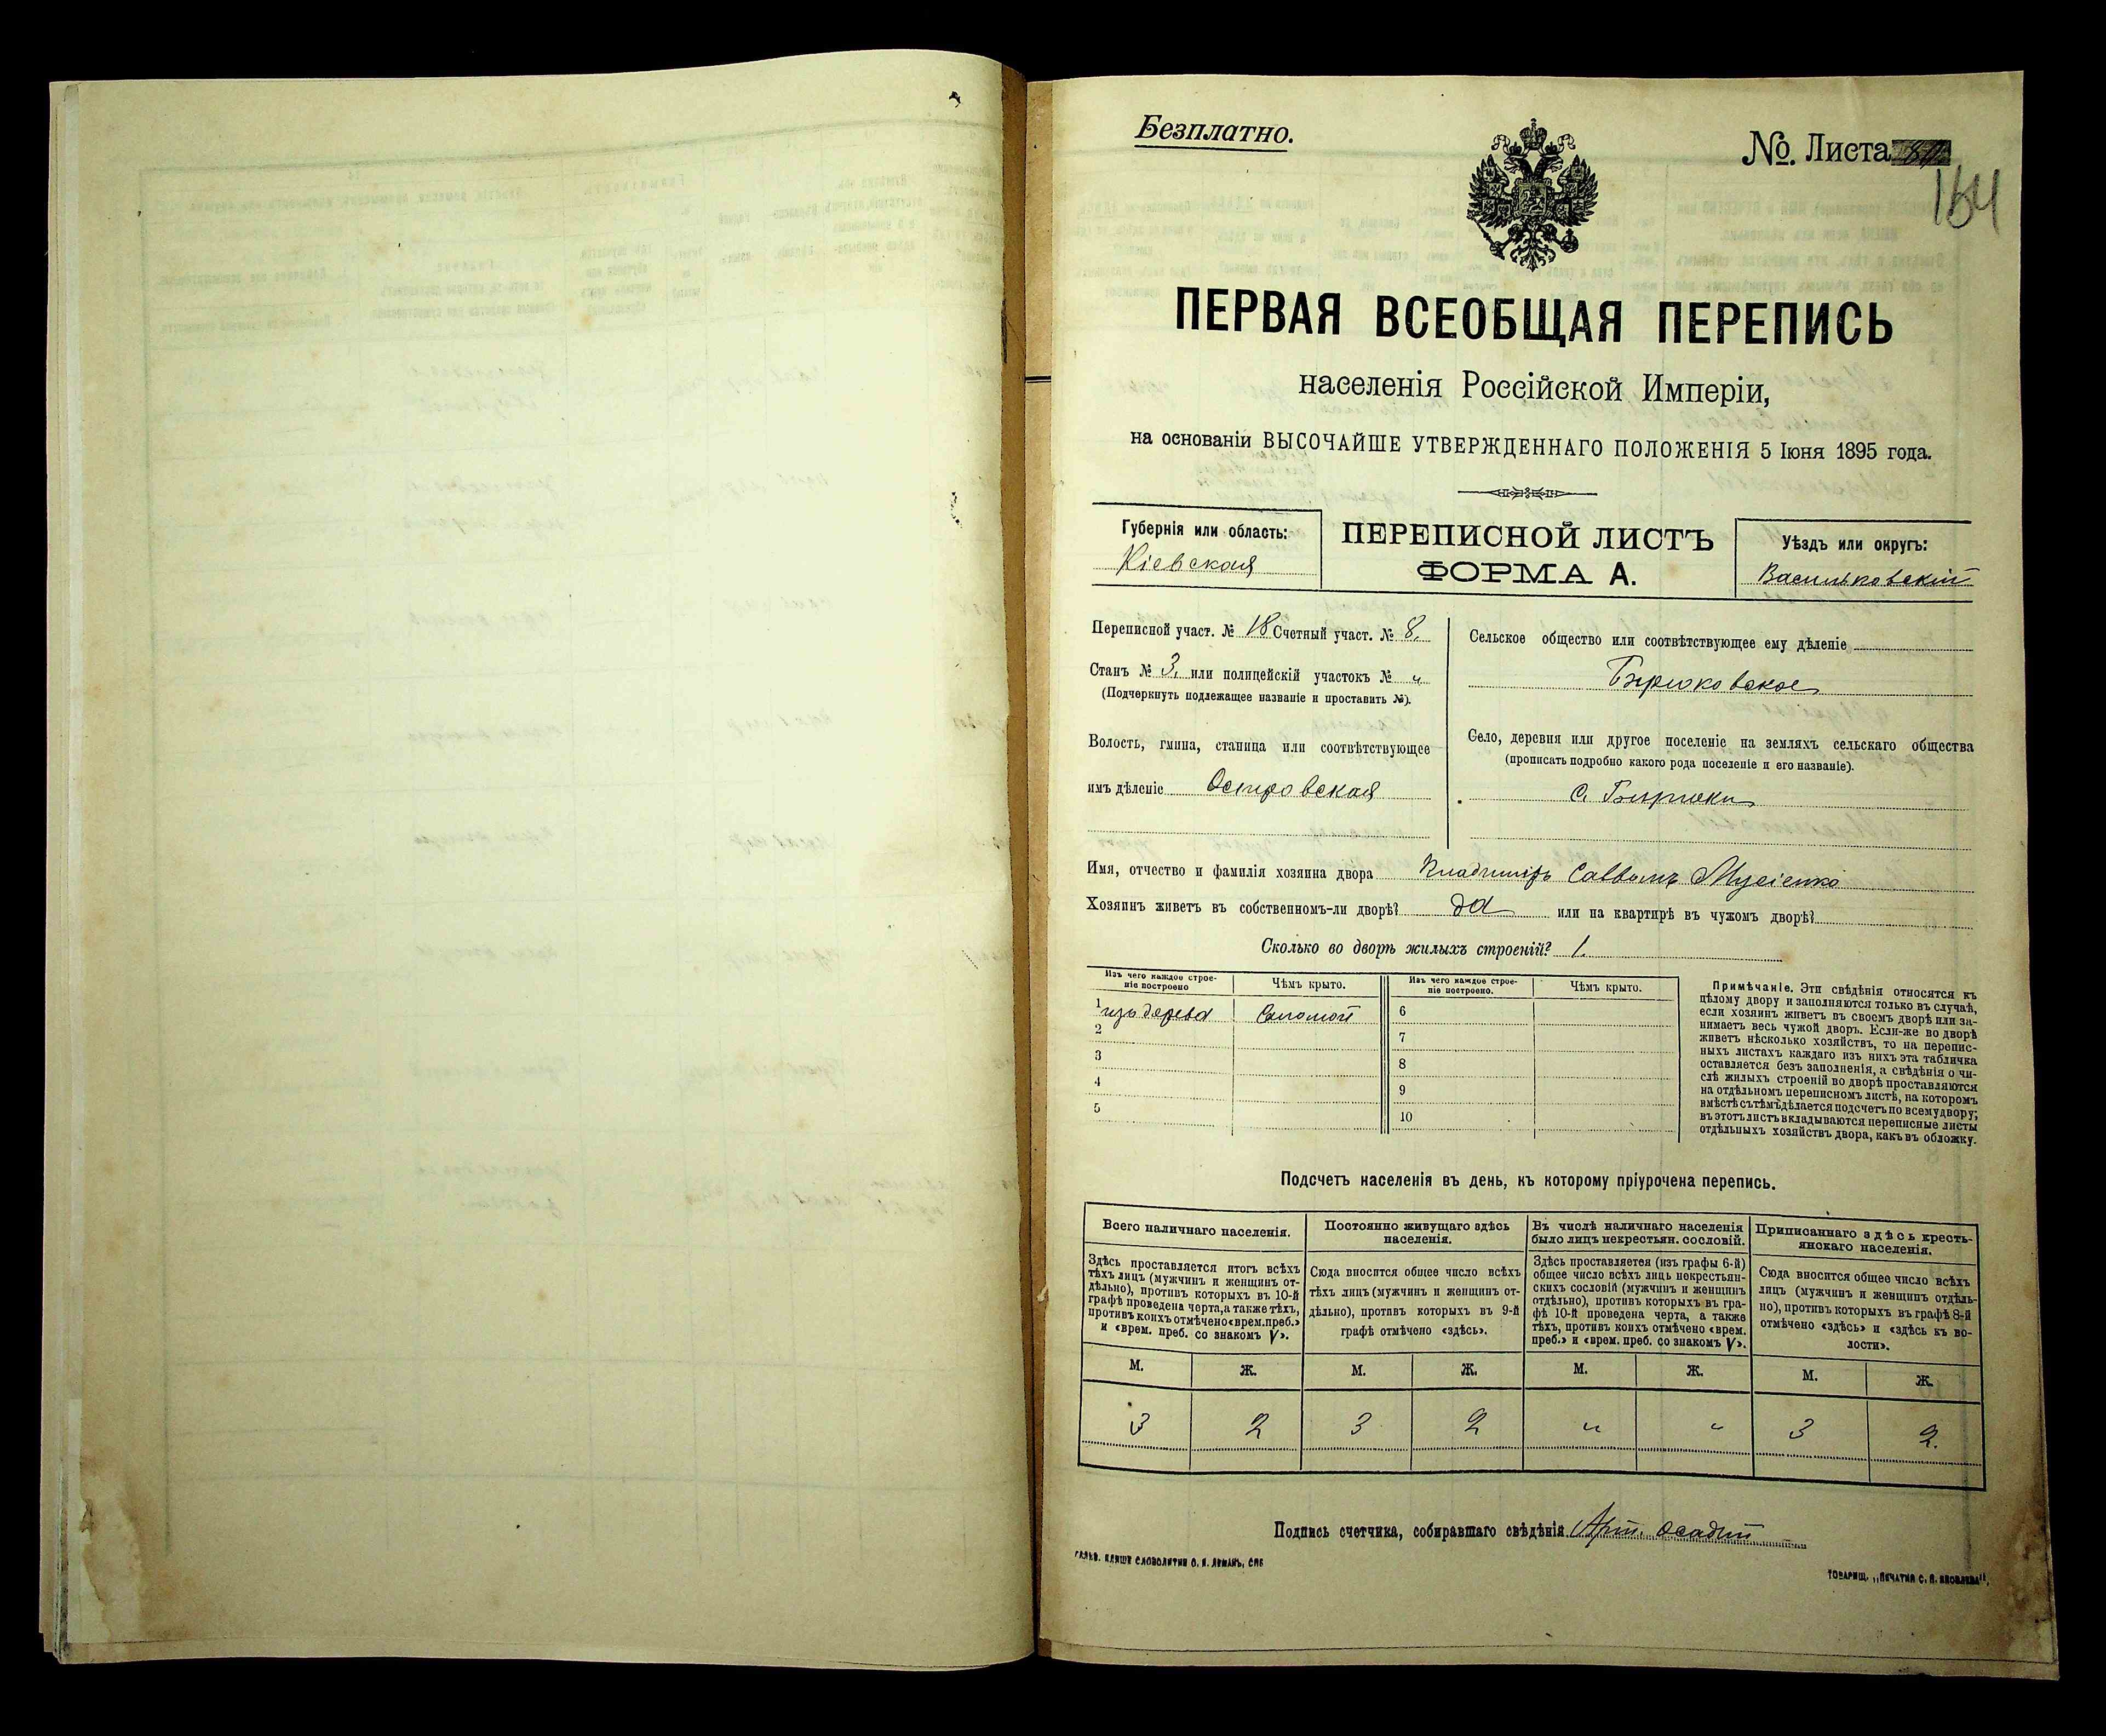 Безплатно.
№. Листа
164
ПЕРВАЯ ВСЕОБЩАЯ ПЕРЕПИСЬ
населенія Россійской Имперіи,
на основаніи ВЫСОЧАЙШЕ УТВЕРЖДЕННАГО ПОЛОЖЕНІЯ 5 Іюня 1895 года.
Губернія или область:
Кіевская
ПЕРЕПИСНОЙ ЛИСТЪ
ФОРМА А.
Уѣздъ или округъ:
Васильковскій
Переписной участ. № 18 Счетный участ. № 8.
Станъ № 3, или полицейскій участокъ № "
(Подчеркнуть подлежащее названіе и проставить №).
Волость, гмина, станица или соотвѣтствующее
имъ дѣленіе Островская
Сельское общество или соотвѣтствующее ему дѣленіе
Бирюковское
Село, деревня или другое поселеніе на земляхъ сельскаго общества
(прописать подробно какого рода поселеніе и его названіе).
с. Бирюки
Имя, отчество и фамилія хозяина двора Владиміръ Саввовъ Мусіенко
Хозяинъ живетъ въ собственномъ-ли дворѣ? да или на квартирѣ въ чужомъ дворѣ?
Сколько во дворѣ жилыхъ строеній? 1.
Изъ чего каждое строе-
ніе построено
Чѣмъ крыто.
Изъ чего каждое строе-
ніе построено.
Чѣмъ крыто.
1 изъ дерева Соломой
2
3
4
5
6
7
8
9
10
Примѣчаніе. Эти свѣдѣнія относятся къ
цѣлому двору и заполняются только въ случаѣ,
если хозяинъ живетъ въ своемъ дворѣ или за-
нимаетъ весь чужой дворъ. Если-же во дворѣ
живетъ нѣсколько хозяйствъ, то на перепис-
ныхъ листахъ каждаго изъ нихъ эта табличка
оставляется безъ заполненія, а свѣдѣнія о чи-
слѣ жилыхъ строеній во дворѣ проставляются
на отдѣльномъ переписномъ листѣ, на которомъ
вмѣстѣ съ тѣмъ дѣлается подсчетъ по всему двору;
въ этотъ листъ вкладываются переписные листы
отдѣльныхъ хозяйствъ двора, какъ въ обложку.
Подсчетъ населенія въ день, къ которому пріурочена перепись.
Всего наличнаго населенія.
Здѣсь проставляется итогъ всѣхъ
тѣхъ лицъ (мужчинъ и женщинъ от-
дѣльно), противъ которыхъ въ 10-й
графѣ проведена черта, а также тѣхъ,
противъ коихъ отмѣчено «врем. преб.»
и «врем. преб. со знакомъ V».
Постоянно живущаго здѣсь
населенія.
Сюда вносится общее число всѣхъ
тѣхъ лицъ (мужчинъ и женщинъ от-
дѣльно), противъ которыхъ въ 9-й
графѣ отмѣчено «здѣсь».
Въ числѣ наличнаго населенія
было лицъ некрестьян. сословій.
Здѣсь проставляется (изъ графы 6-й)
общее число всѣхъ лицъ некрестьян-
скихъ сословій (мужчинъ и женщинъ
отдѣльно), противъ которыхъ въ гра-
фѣ 10-й проведена черта, а также
тѣхъ, противъ коихъ отмѣчено «врем.
преб.» и «врем. преб. со знакомъ V».
Приписаннаго здѣсь кресть-
янскаго населенія.
Сюда вносится общее число всѣхъ
лицъ (мужчинъ и женщинъ отдѣль-
но), противъ которыхъ въ графѣ 8-й
отмѣчено «здѣсь» и «здѣсь къ во-
лости».
М. Ж. М. Ж. М. Ж. М. Ж.
3 2 3 2 " " 3 2.
Подпись счетчика, собиравшаго свѣдѣнія
ГАЛЬВ. КЛИШЕ СЛОВОЛИТНИ О. И. ЛЕМАНЪ, СПБ
ТОВАРИЩ. „ПЕЧАТНЯ С. П. ЯКОВЛЕВА".